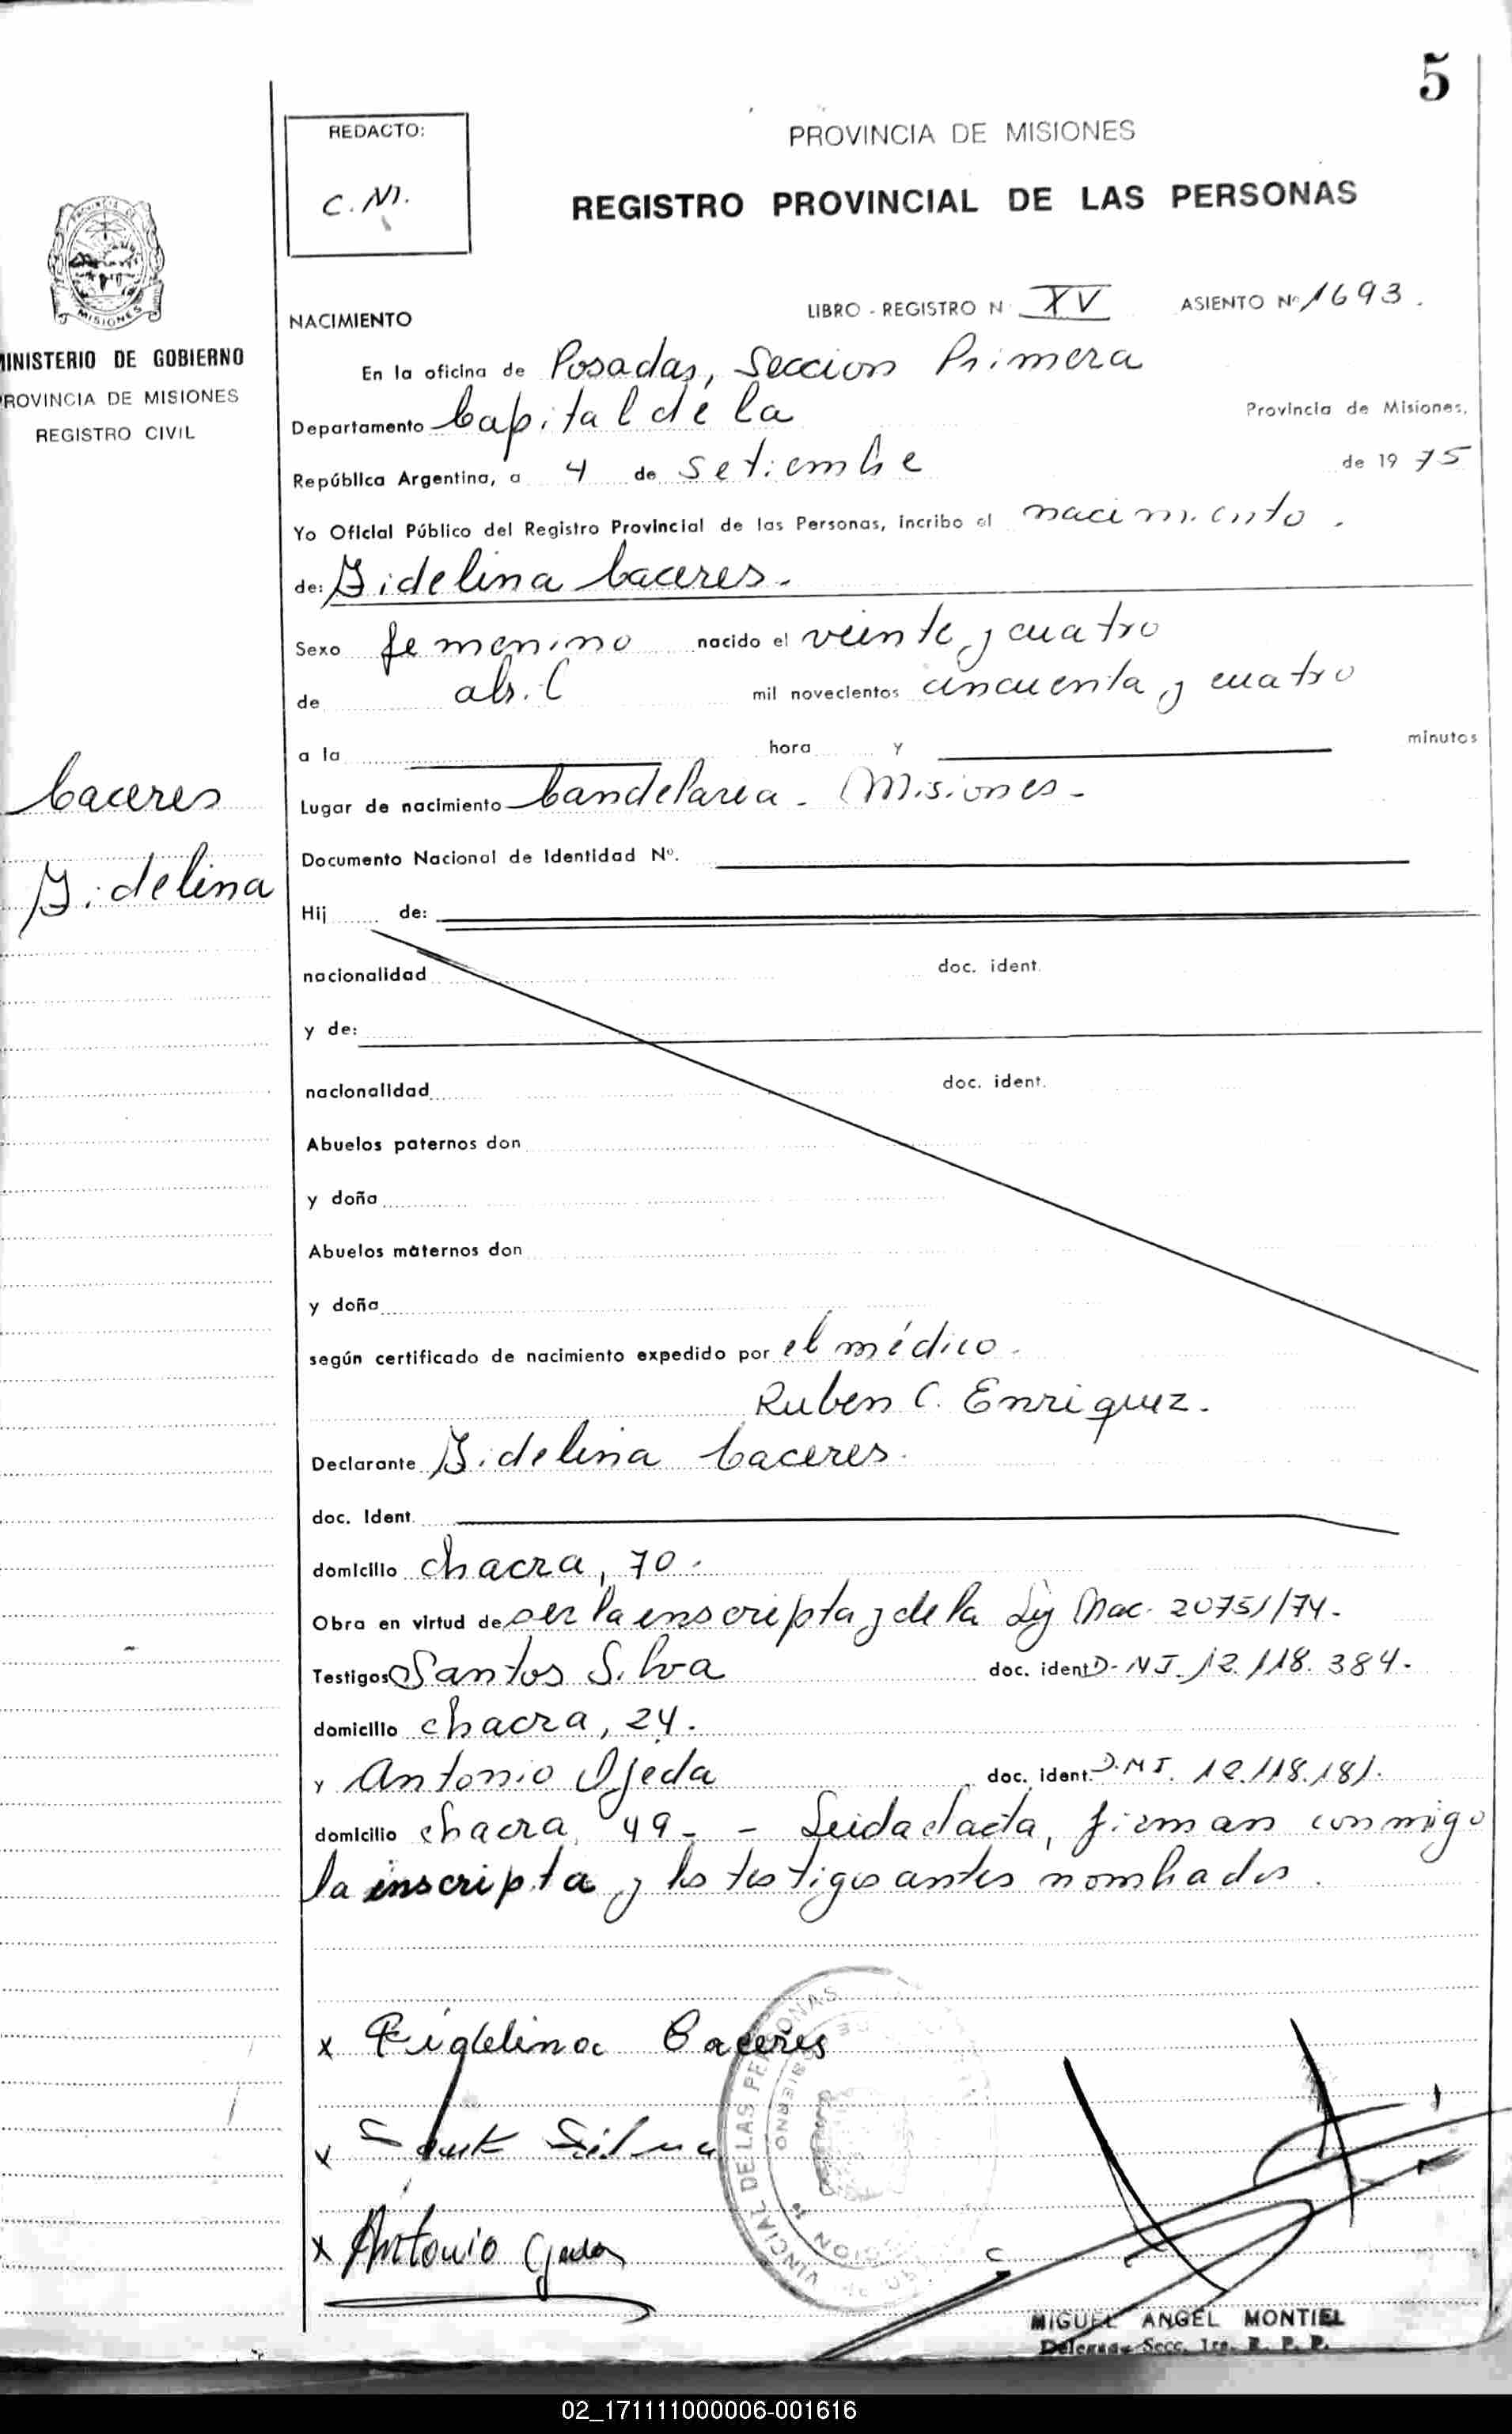 5
REDACTO:
C. M.
PROVINCIA DE MISIONES
REGISTRO PROVINCIAL DE LAS PERSONAS
MISIONES
MINISTERIO DE GOBIERNO
PROVINCIA DE MISIONES
REGISTRO CIVIL
NACIMIENTO
LIBRO - REGISTRO N XV ASIENTO Nº 1693.
En la oficina de Posadas, Seccion Primera
Departamento Capital de la Provincia de Misiones,
República Argentina, a 4 de Setiembre de 1975
Yo Oficial Público del Registro Provincial de las Personas, incribo el nacimiento.
de: Fidelina Caceres.
Sexo femenino nacido el veinte y cuatro
de abril mil novecientos cincuenta y cuatro
a la hora Y minutos
Caceres
Fidelina
Lugar de nacimiento Candelaria - Misiones -
Documento Nacional de Identidad Nº.
Hij de:
nacionalidad doc. ident.
y de:
nacionalidad doc. ident.
Abuelos paternos don
y doña
Abuelos maternos don
y doña
según certificado de nacimiento expedido por el médico.
Ruben C. Enriquez.
Declarante Fidelina Caceres.
doc. Ident.
domicilio chacra, 70.
Obra en virtud de ser la inscripta y de la Ley Nac. 20751/74.
Testigos Santos Silva doc. ident D-NI. 12.118.384.
domicilio chacra, 24.
y Antonio Ojeda doc. ident. D.NI. 12.118.181.
domicilio chacra 49 - - Leida el acta, firman conmigo
la inscripta y los testigos antes nombrados.
x Fidelina Caceres
x Silva
x Antonio Ojeda
VINCIAL DE LAS PERSONAS
MIGUEL ANGEL MONTIEL
Delegado Secc. 1ra. R. P. P.
02_171111000006-001616